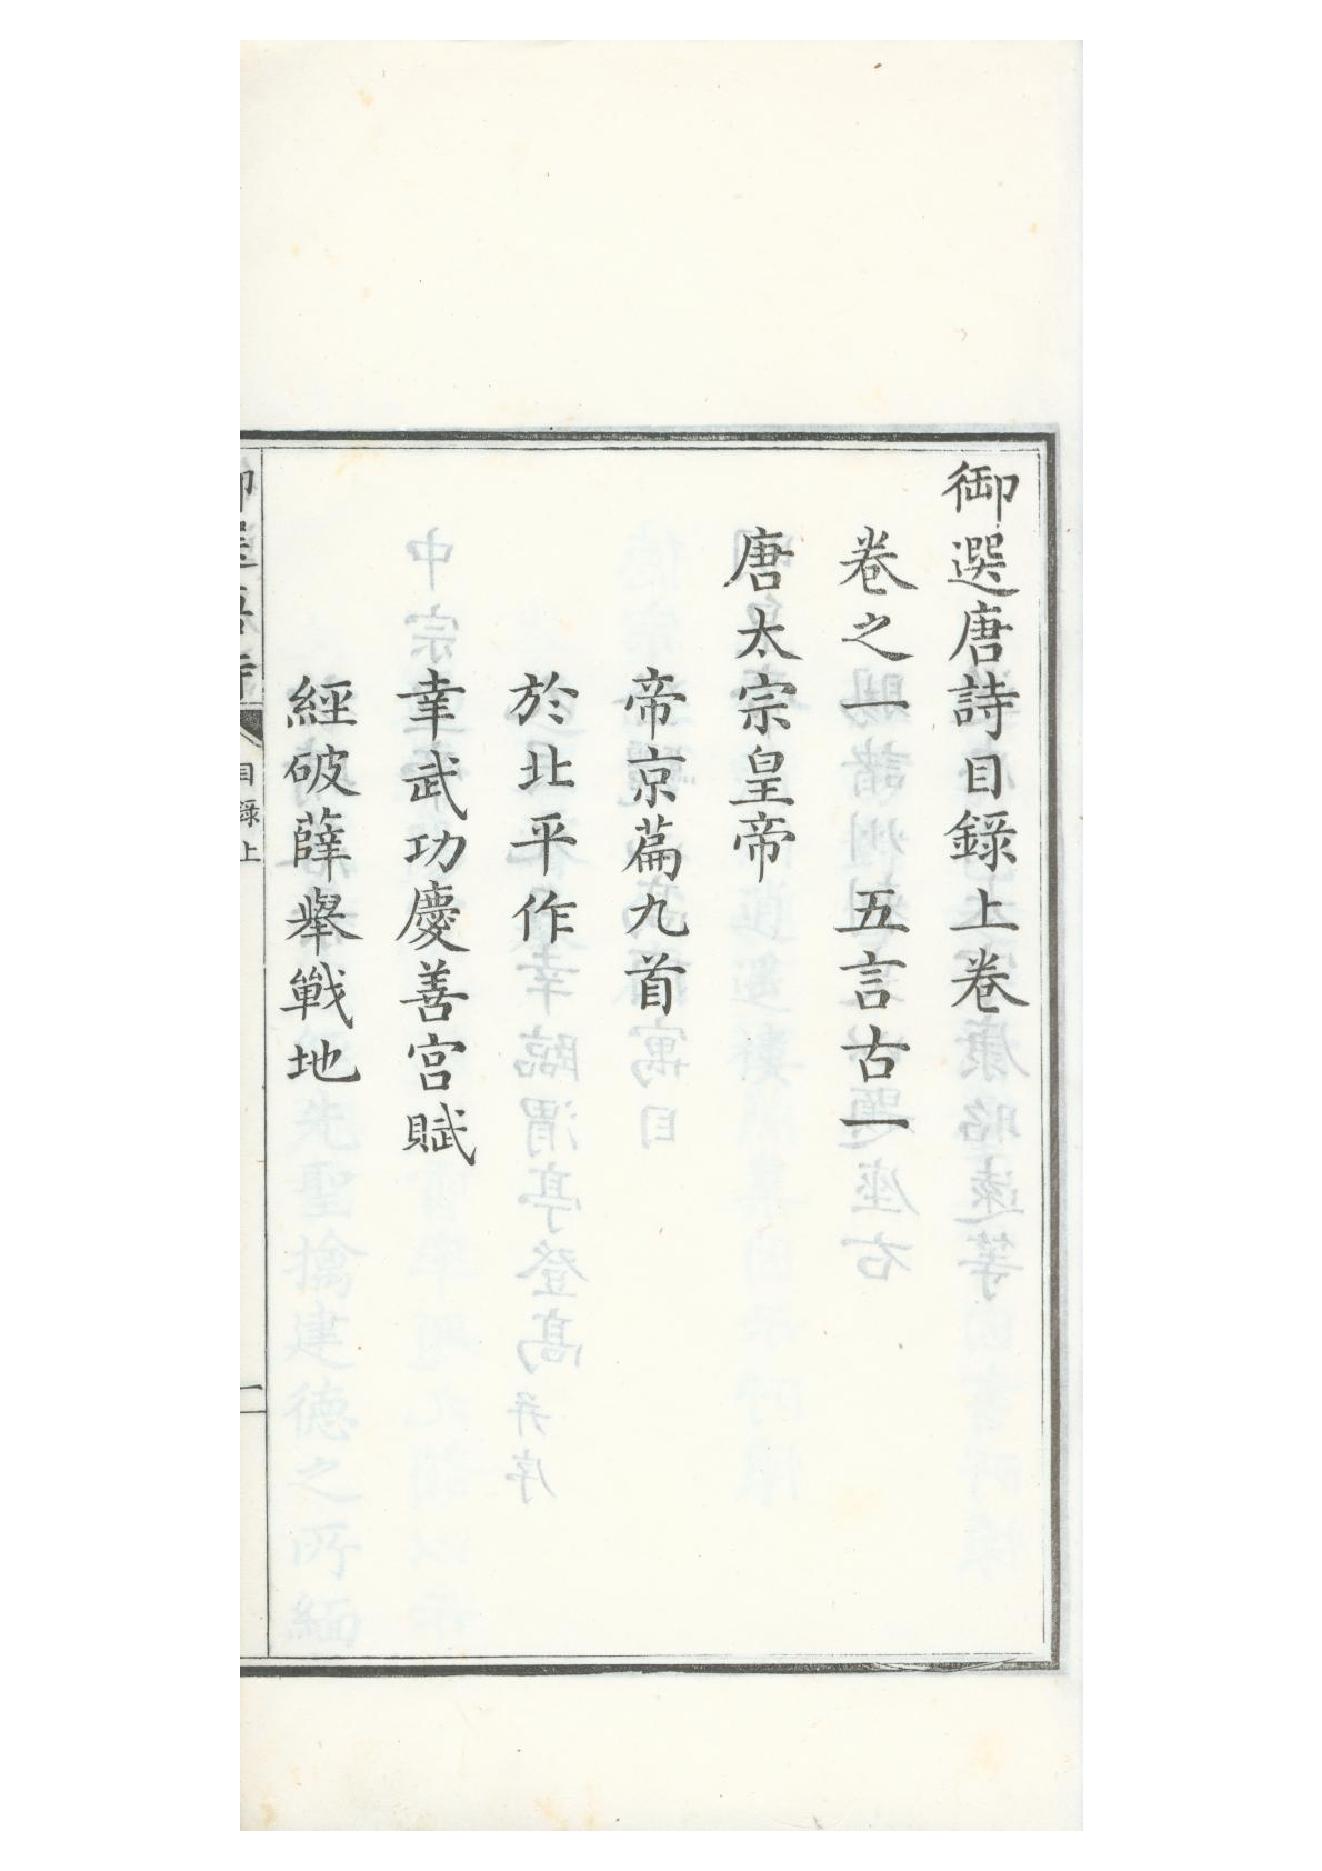 御選唐詩目錄上卷
卷之一　五言古一
唐太宗皇帝
帝京篇九首
於北平作
幸武功慶善宮賦
經破薛舉戰地
目錄上